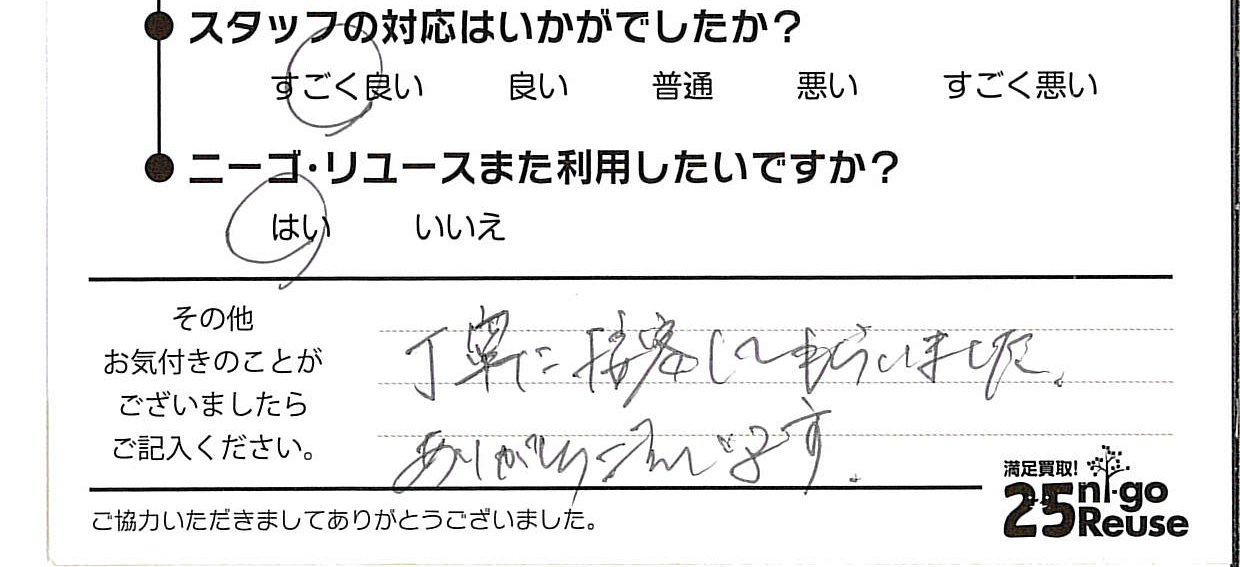 スタッフの対応はいかがでしたか?
すごく良い 良い 普通 悪い すごく悪い
ニーゴ・リユースまた利用したいですか?
はい いいえ
その他
お気付きのことが
ございましたら
ご記入ください。
丁寧に接客してもらいました。
ありがとうございます。
満足買取!
25 ni-go
Reuse
ご協力いただきましてありがとうございました。